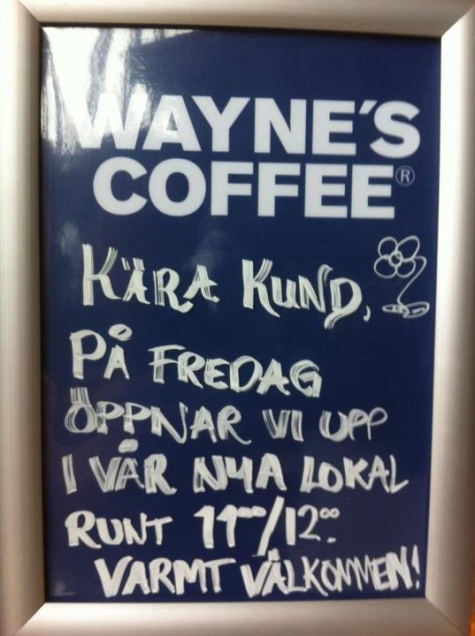 WAYNE'S
COFFEE®
KÄRA KUND,
PÅ FREDAG
ÖPPNAR VI UPP
I VÅR NYA LOKAL
RUNT 11⁰⁰/12⁰⁰.
VARMT VÄLKOMMEN!